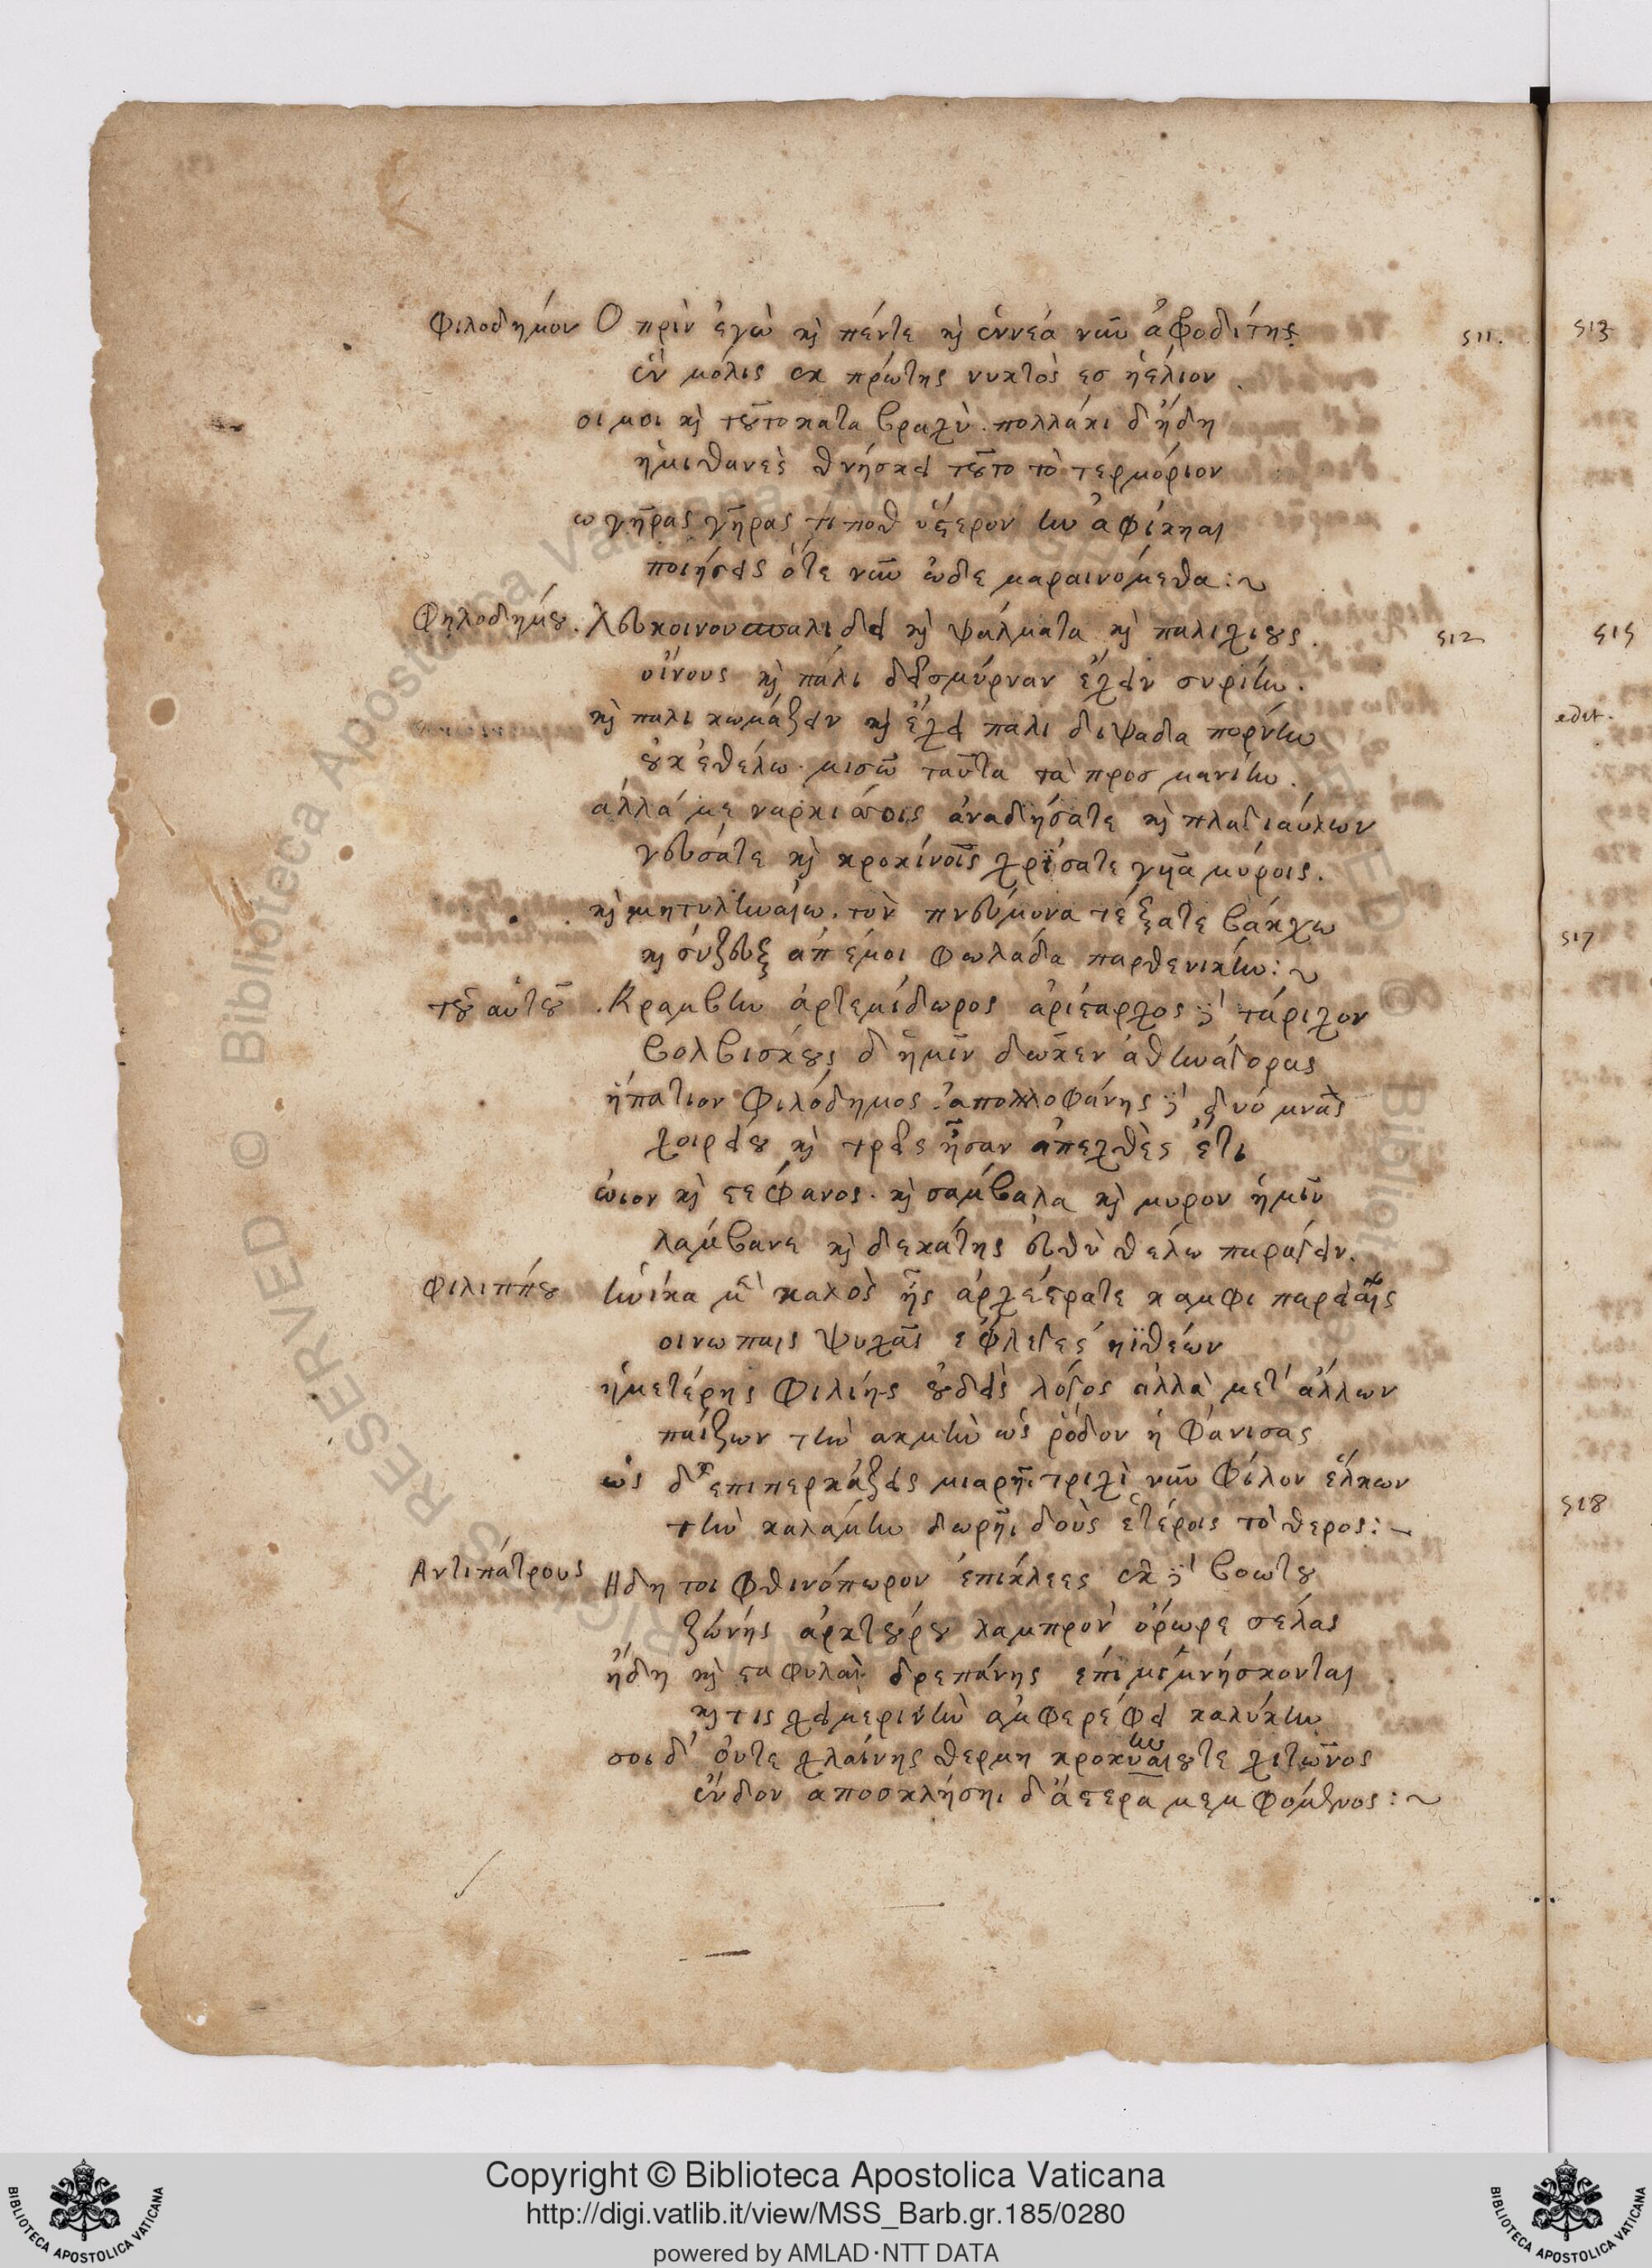 Φιλοδημόν Ὁ πρὶν ἐγὼ καὶ πέντε καὶ ἐννεά νῦν ἀφροδίτης 511.
ἐν μόλις ἐκ πρώτης νυκτὸς εσ ἠέλιον.
οι μοι καὶ τοῦτο κατα βραχὺ. πολλάκι δ' ἤδη
ἡμιθανὲς θνήσκει τοῦτο τὸ τερμόριον
ω γῆρας γῆρας τι ποθ ὕστερον ην ἀφίκηαι
ποιήσεις ὅτε νῦν ὧδε μαραινόμεθα:~
Φηλοδημου. λευκοινου παλι δει καὶ ψάλματα καὶ παλι χιους. 512
οἴνους καὶ πάλι δεισμύρναν ἔχειν συριην.
καὶ παλι κωμάζειν καὶ ἔχει παλι διψαδα πορνην
οὐκ ἐθέλω. μισῶ ταῦτα τὰ προσ μανιην.
αλλά με ναρκισσοις ἀναδήσατε καὶ πλαγιαύλων
γευσάτε καὶ κροκίνοῖς χρίσατε γυῖα μύροις.
καὶ μητυληναίω. τὸν πνεύμονα τέξατε βάκχω
καὶ σύζευξ απ έμοι φωλάδα παρθενικήν:~
τοῦ αὐτοῦ. Κραμβην ἀρτεμίδωρος ἀρίσταρχος δὲ τάριχον
βολβίσκους δ ἡμῖν δωκεν ἀθηναγορας
ἡπατιον Φιλόδημος. ἀπολλοφάνης δὲ δυό μνᾶς
χοιρείου καὶ τρεῖς ἦσαν ἀπεχθὲς ἔτι
ώιον καὶ στεφανος. καὶ σαμβαλα καὶ μυρον ἡμῖν
λαμβανε καὶ δεκάτης εὐθὺ θελω παραγειν.
Φιλιππου Ηνίκα μὲν καλὸς ἦς ἀρχεστρατε καμφι παρειαῖς
οινωπαις ψυχᾶς εφλεγες ηϊθεών
ἡμετέρης Φιλίης οὐδεὶς λόγος αλλὰ μετ' ἄλλων
παίζων τὴν ακμὴν ὡς ῥόδον ἠφάνισας
ὡς δ' επιπερκάζεις μιαρῆι τριχὶ νῦν Φίλον ἕλκων
τὴν καλάμην δωρῆι δοὺς ἑτέροις τὸ θερος:~
Αντιπάτρους Ηδη τοι φθινόπωρον ἐπίκλεες ἐκ δὲ βοωτου
ζώνης ἀρκτούρου λαμπρὸν ὄρωρε σέλας
ἤδη καὶ σταφυλαὶ δρεπάνης ἐπιμεμνήσκονται
καὶ τις χειμερινὴν αμφερέφει καλύκην
σοι δ' οὔτε χλαίνης θερμη κροκυς ουτε χιτῶνος
ἔνδον αποσκλήσηι δ' ἀστερα μεμφόμενος:~
513
515
edit.
517
518
Copyright © Biblioteca Apostolica Vaticana
http://digi.vatlib.it/view/MSS_Barb.gr.185/0280
powered by AMLAD·NTT DATA
BIBLIOTECA APOSTOLICA VATICANA
BIBLIOTECA APOSTOLICA VATICANA